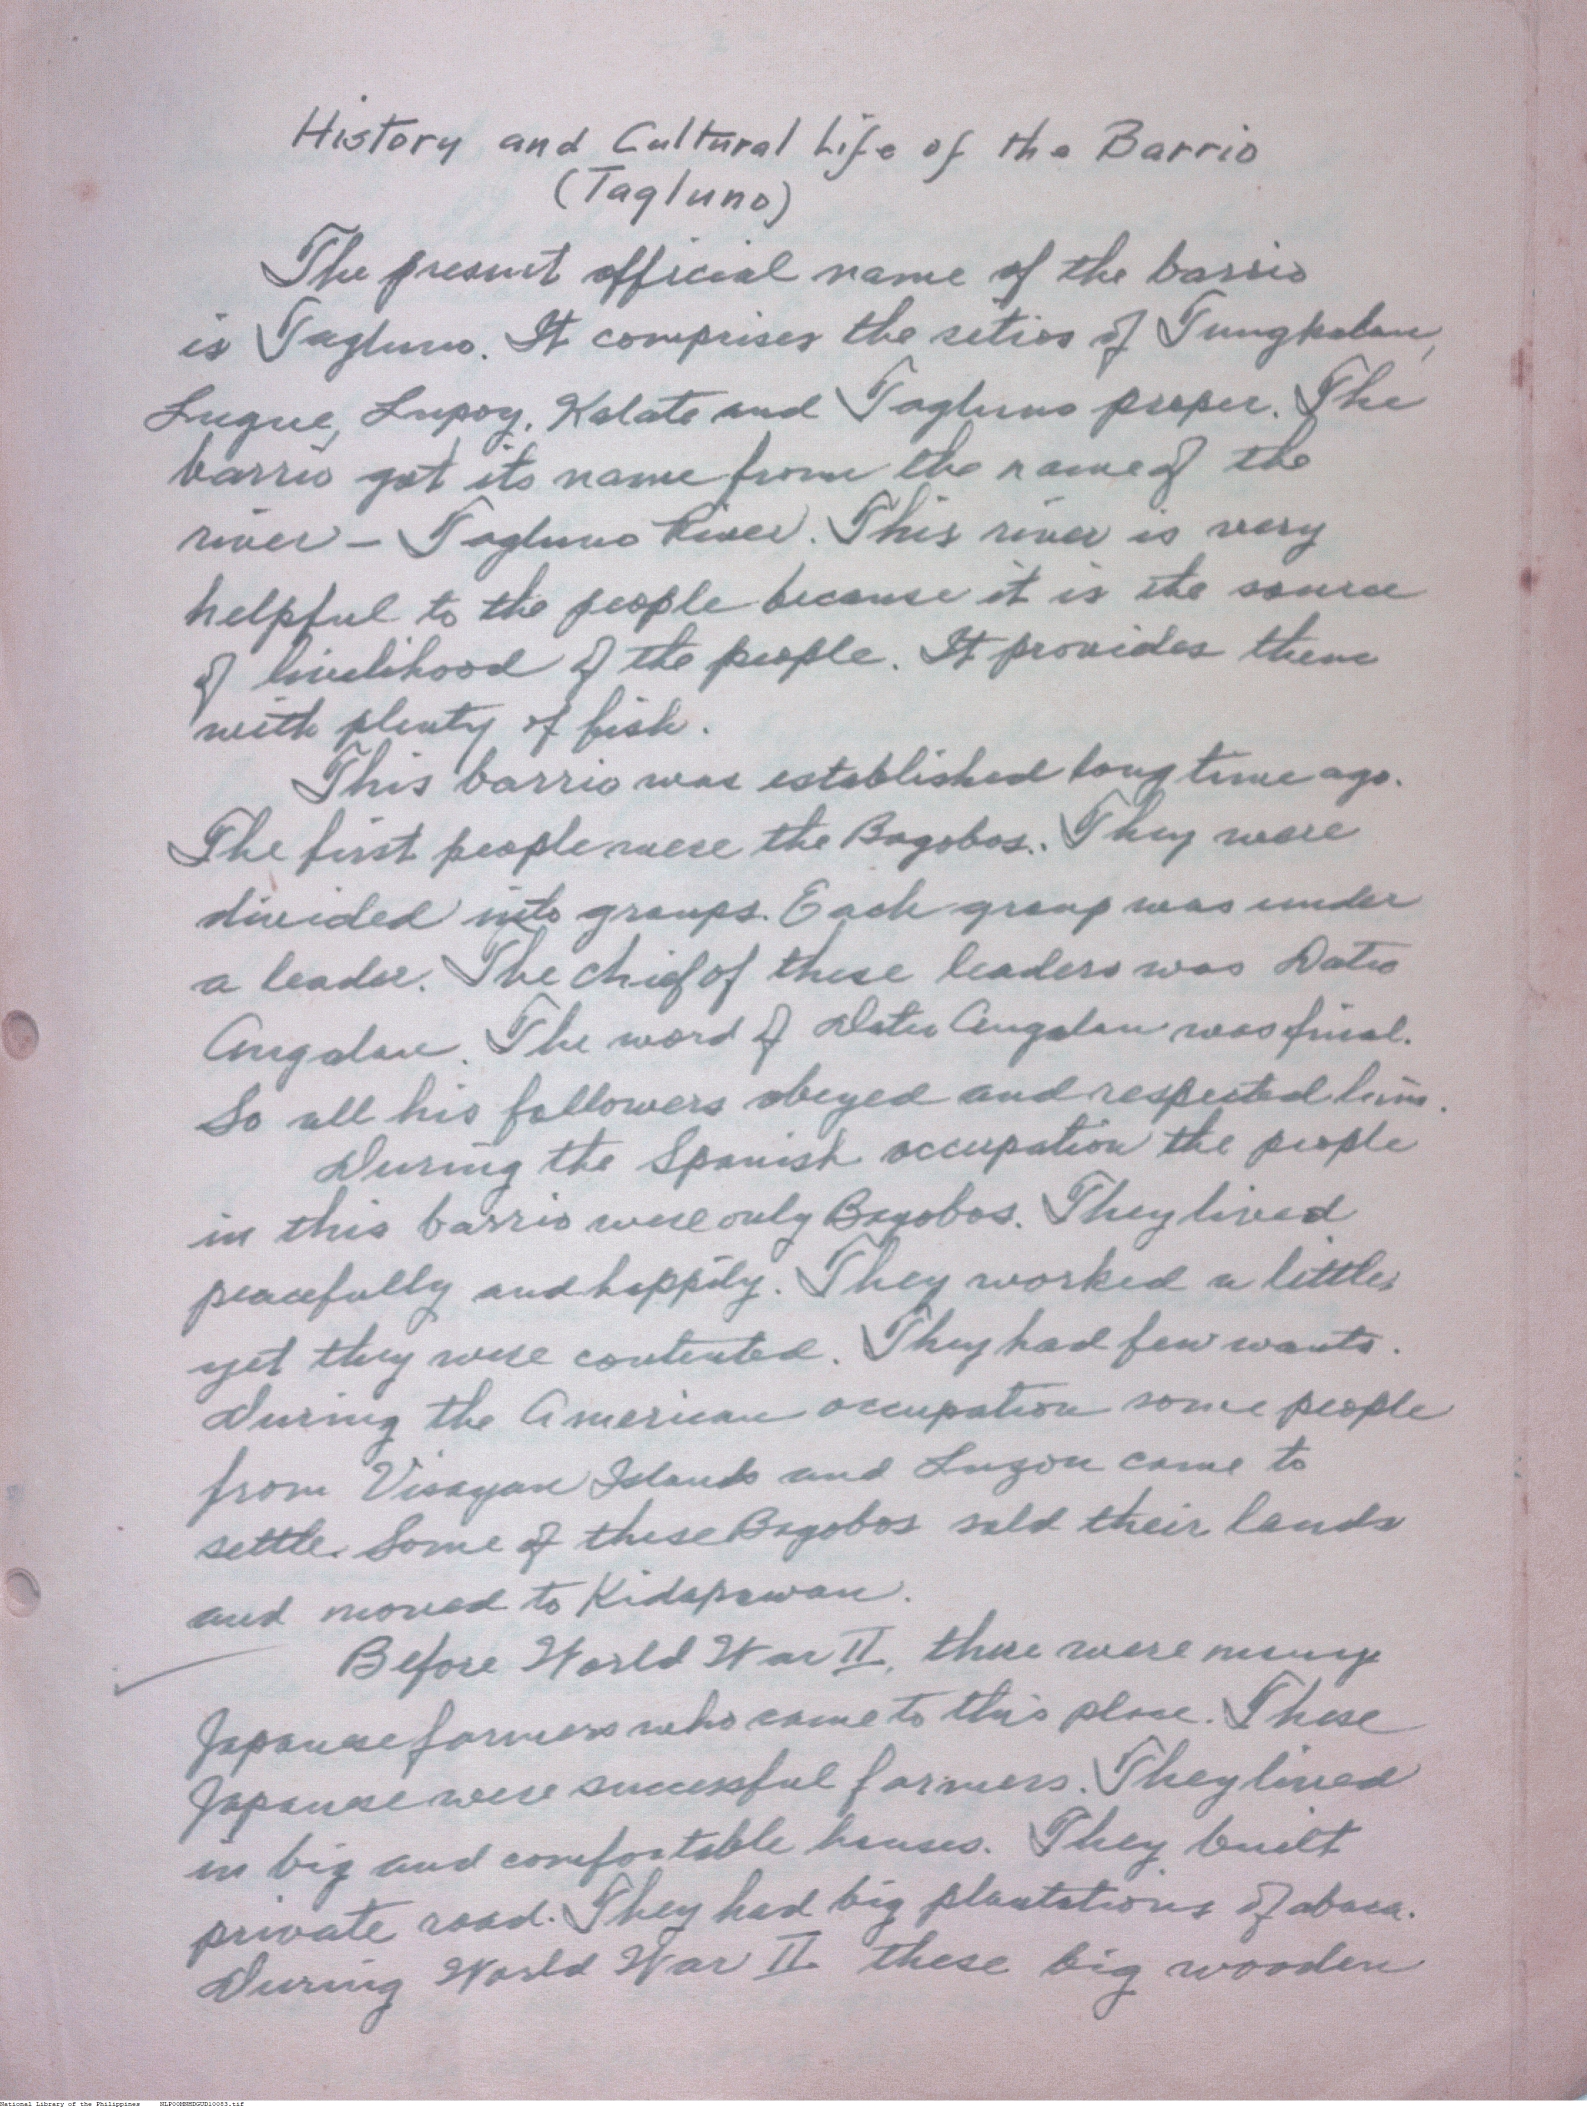 History and Cultural Life of the Barrio
(Tagluno)
The present official name of the barrio
is Tagluno. It comprises the sitios of Tungkalan,
Lugue, Lupoy, Kalate and Tagluno proper. The
barrio got its name from the name of the
river - Tagluno River. This river is very
helpful to the people because it is the source
of livelihood of the people. It provides them
with plenty of fish.
This barrio was established long time ago.
The first people were the Bagobos. They were
divided into groups. Each group was under
a leader. The chief of these leaders was Datu
Angalan. The word of Datu Angalan was final.
So all his followers obeyed and respected him.
During the Spanish occupation the people
in this barrio were only Bagobos. They lived
peacefully and happily. They worked a little,
yet they were contented. They had few wants.
During the American occupation some people
from Visayan Islands and Luzon came to
settle. Some of these Bagobos sold their lands
and moved to Kidapawan.
Before World War II, there were many
Japanese farmers who came to this place. These
Japanese were successful farmers. They lived
in big and comfortable houses. They built
private road. They had big plantations of abaca.
During World War II these big wooden
National Library of the Philippines NLPOOMNHDGUD10083.tif